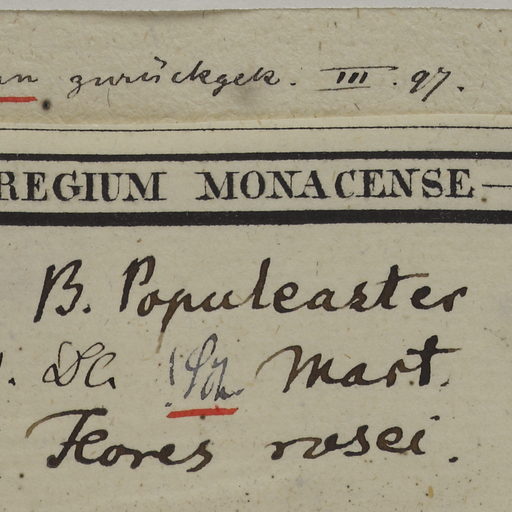 zurückgek. III. 97.
REGIUM MONACENSE
B. Populcaster
DC. Mart.
Flores rosei.